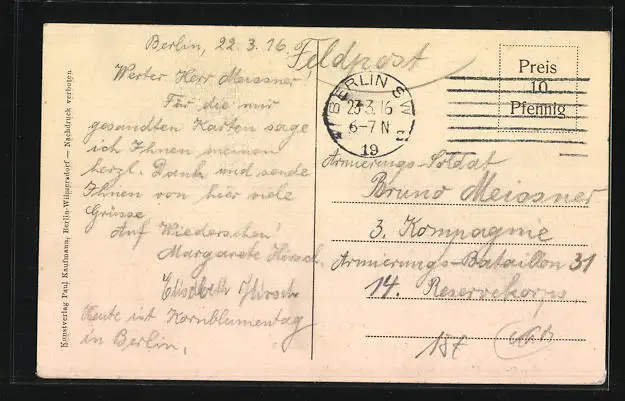 Berlin, 22.3.16.
Werter Herr Meissner!
Für die mir
gesandten Karten sage
ich Ihnen meinen
herzl. Dank und sende
Ihnen von hier viele
Grüsse
Auf Wiedersehen!
Margarete Hirsch.
Elisabeth Hirsch
Heute ist Kornblumentag
in Berlin.
Kunstverlag Paul Kaufmann, Berlin-Wilmersdorf — Nachdruck verboten
Feldpost
BERLIN SW
23.3.16
6-7 N
19
Preis
10
Pfennig
Armierungs-Soldat
Bruno Meissner
3. Kompagnie
Armierungs-Bataillon 31
14. Reservekorps